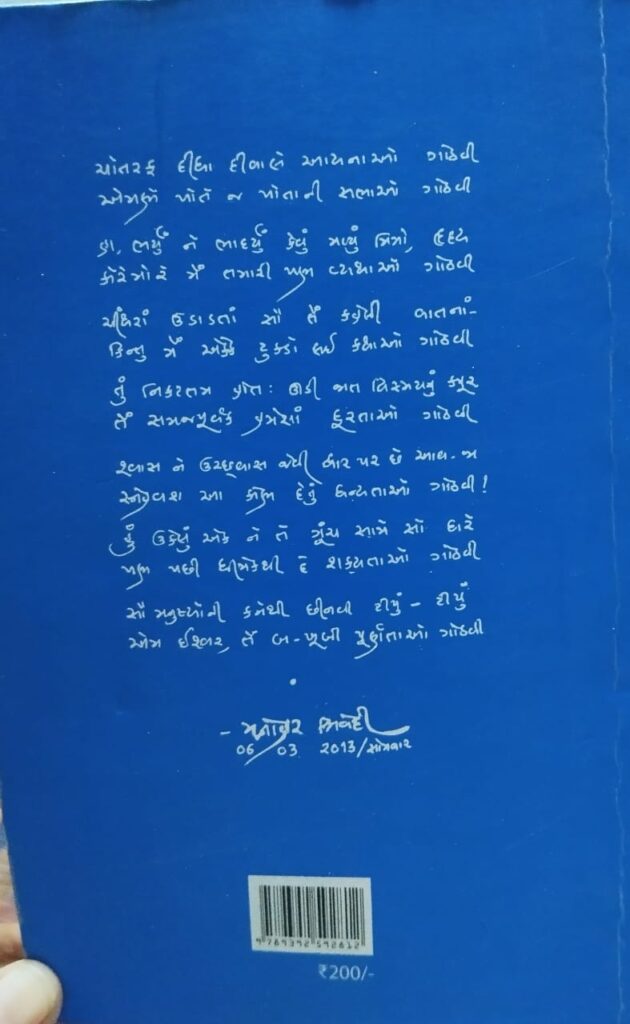 ચોતરફ દીધા દીવાલે આયનાઓ ગોઠવી
એમણે પોતે જ પોતાની સભાઓ ગોઠવી
હા, ભર્યું ને ભાદર્યું કેવું મળ્યું મિત્રો, હૃદય
કોરેમોરે મેં તમારી પણ વ્યથાઓ ગોઠવી
ચીંથરાં ઉડાડતાં સૌ તેં કહેલી વાતનાં-
કિન્તુ મેં એકેક ટુકડો લઈ કથાઓ ગોઠવી
તું નિકટતમ હોત: ઊડી જાત વિસ્મયનું કપૂર
તેં સમજપૂર્વક હંમેશાં દૂરતાઓ ગોઠવી
શ્વાસ ને ઉચ્છ્વાસ જેવી ધાર પર છે આવ-જા
સ્નેહવશ આ કોણ દેતું ધન્યતાઓ ગોઠવી!
હું ઉકેલું એક ને તેં ગૂંચ સામે સો ધરે
પણ પછી ધીમેકથી દે શક્યતાઓ ગોઠવી
સૌ મનુષ્યોની કનેથી છીનવી ટીપું - ટીપું
એમ ઈશ્વર, તેં બ-ખૂબી પૂર્ણતાઓ ગોઠવી
- મનોહર ત્રિવેદી
06 / 03 2013/સોમવાર
9 789392 592612
₹200/-